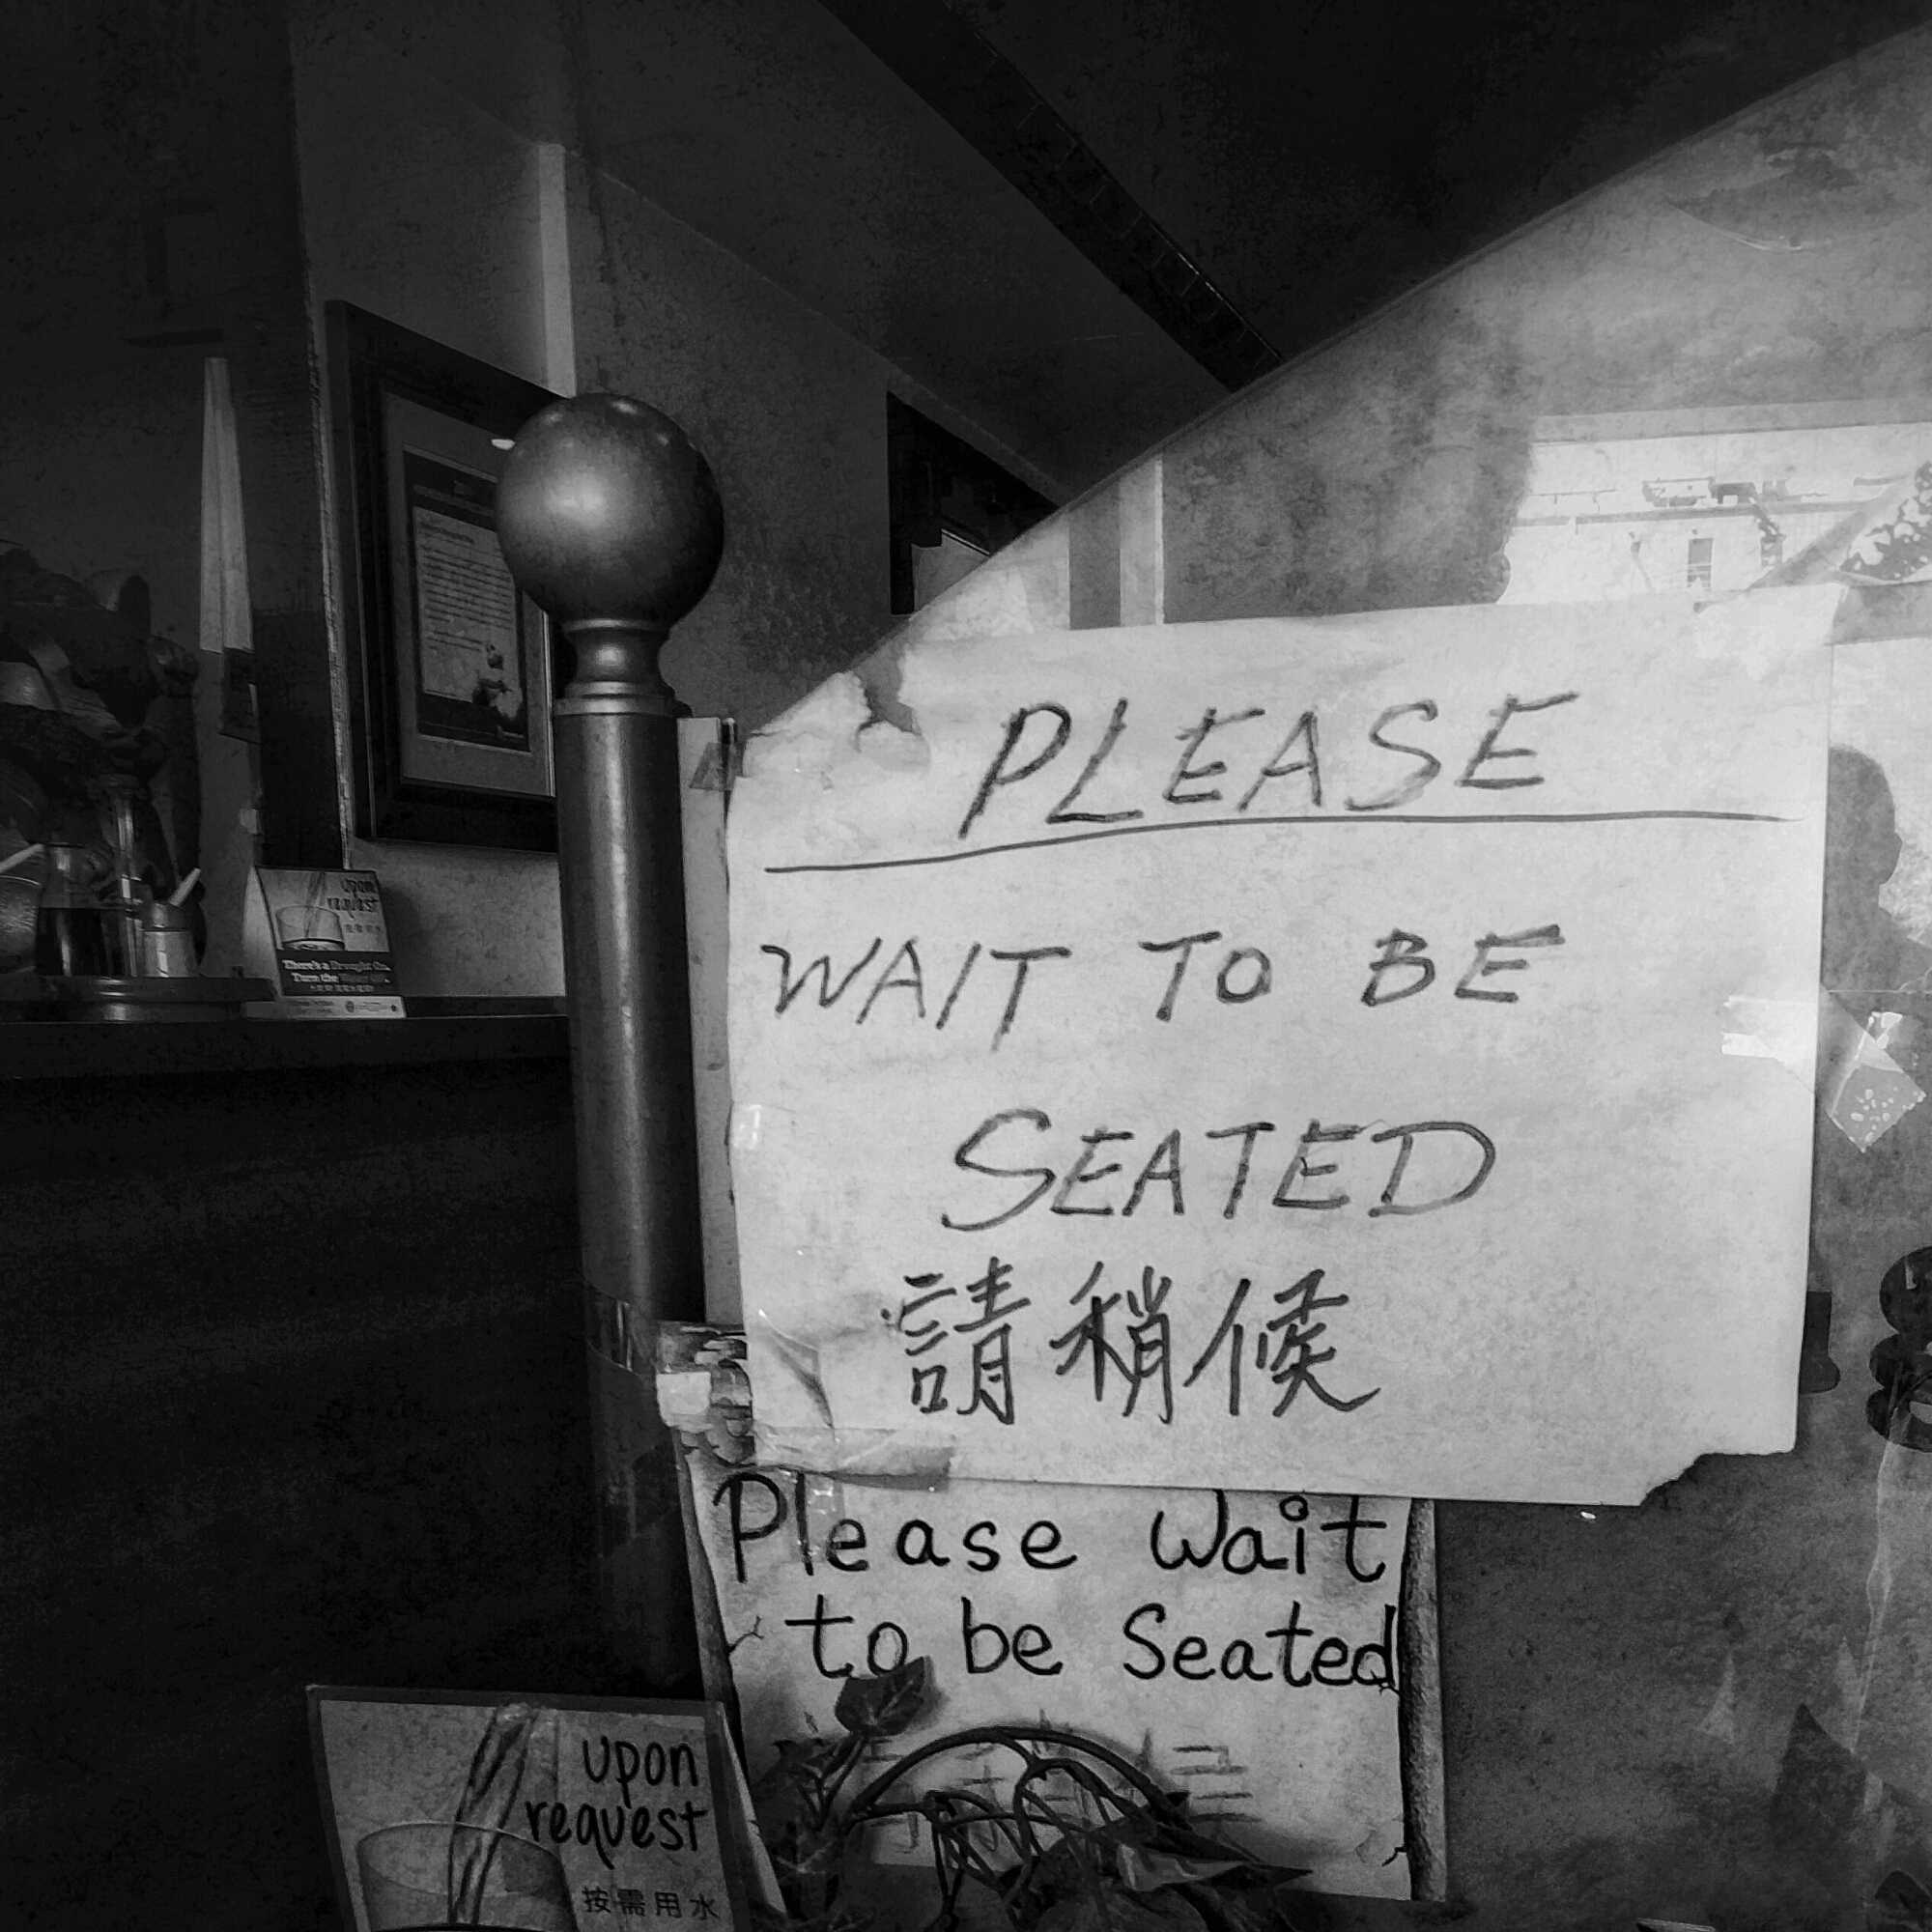 PLEASE
WAIT TO BE
SEATED
請稍候
Please Wait
to be Seated
upon
request
按需用水
upon
request
There's a Drought On.
Turn the Water Off.